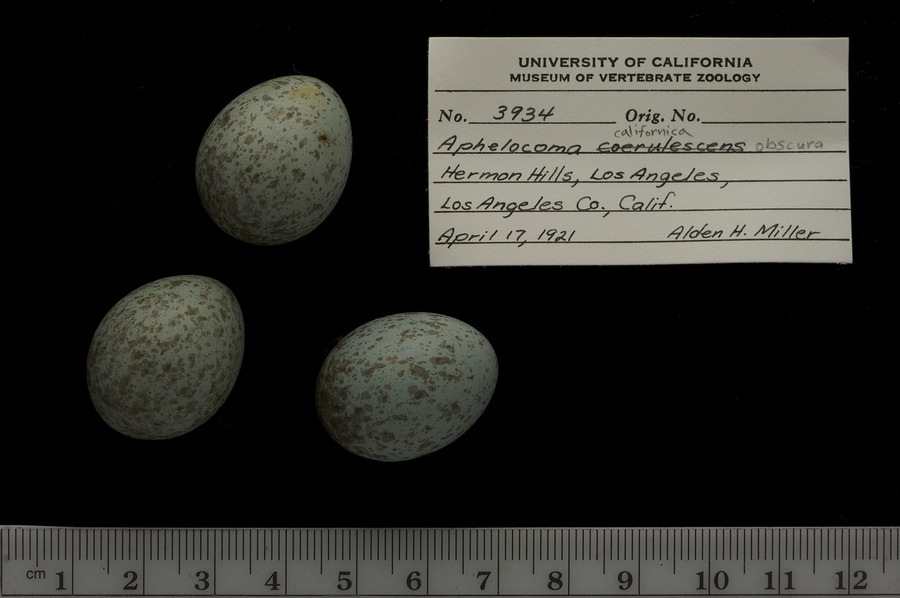 UNIVERSITY OF CALIFORNIA
MUSEUM OF VERTEBRATE ZOOLOGY
No. 3934 Orig. No.
californica
Aphelocoma coerulescens obscura
Hermon Hills, Los Angeles,
Los Angeles Co., Calif.
April 17, 1921 Alden H. Miller
cm 1 2 3 4 5 6 7 8 9 10 11 12